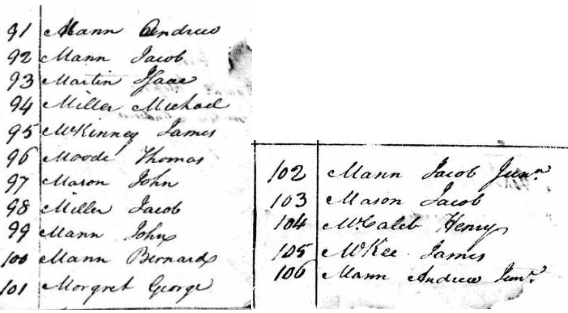 91 Mann Andrew
92 Mann Jacob
93 Martin Isaac
94 Miller Michael
95 McKinney James
96 Moode Thomas
97 Mason John
98 Miller Jacob
99 Mann John
100 Mann Bernard
101 Morgret George
102 Mann Jacob Junr
103 Mason Jacob
104 McCaleb Henry
105 McKee James
106 Mann Andrew Junr.